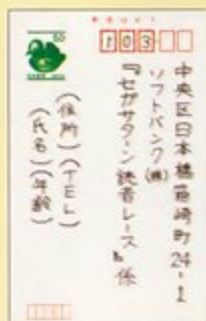 50
103
中央区日本橋箱崎町24-1
ソフトバンク㈱
『セガサターン読者レース』係
(住所)(TEL)
(氏名)(年齢)